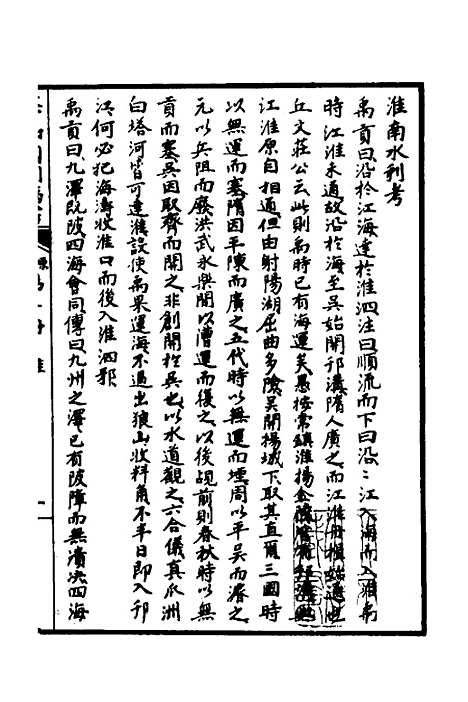 淮南水利考
禹貢曰沿於江海達於淮泗注曰順流而下曰沿：江入海而入淮禹
時江淮未通故沿於海至吳始開邗溝隋人廣之而江淮舟楫始通也
丘文莊公云此則禹時已有海運矣愚按常鎮淮揚
江淮原自相通但由射陽湖屈曲多險吳開揚城下取其直爾三國時
以無運而塞隋因平陳而廣之五代時以無運而堙周以平吳而濬之
元以兵阻而廢洪武永樂開以漕運而復之以後視前則春秋時以無
貢而塞吳因取齊而開之非創開於吳也以水道觀之六合儀真瓜洲
白塔河皆可達淮設使禹果運海不過出狼山收料角不半日即入邗
江何必把海濤收淮口而後入淮泗耶
禹貢曰九澤既陂四海會同傳曰九州之澤已有陂障而無潰决四海
淮
一